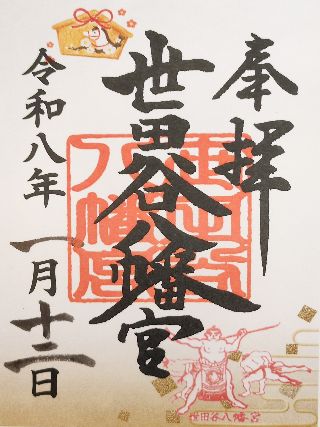 奉拝
世田谷八幡宮
令和八年
一月十二日
世田谷八幡宮
世田谷八幡宮